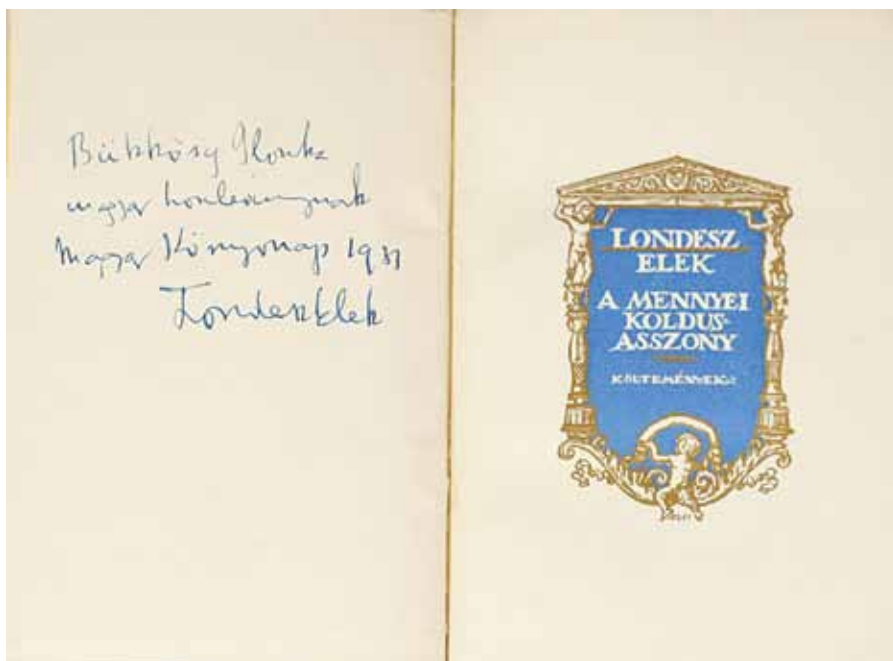 Bükkösy Ilonka
magyar honleánynak
Magyar Könyvnap 1931
Londesz Elek
LONDESZ
ELEK
A MENNYEI
KOLDUS-
ASSZONY
KÖLTEMÉNYEK